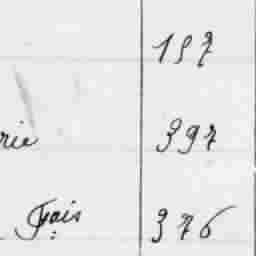 157
rie 397
Fçais 376